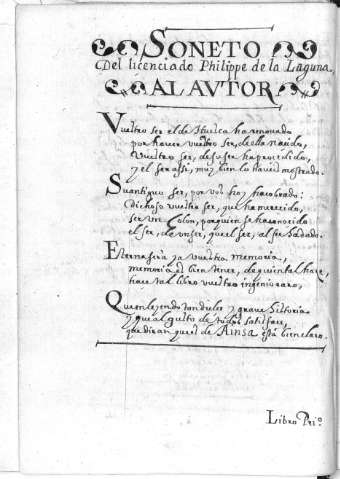 SONETO
Del licenciado Philippe de la Laguna,
AL AVTOR
Vuestro ser el de Huesca ha renouado
por hauer vuestro ser, de ella naçido,
Vuestro ser, de su ser ha proçedido,
y el ser assi, muy bien lo haueis mostrado.
Su antiguo ser, por vos hoy ha cobrado:
Dichoso vuestro ser, que ha mereçido,
ser vn Colon, por quien se ha conocido
el ser, de vn ser, que el ser, al ser ha dado.
Eterna sera ya vuestra memoria,
memoria es bien tener, de quien tal haze,
haze tal libro vuestro ingenio raro,
Que en leyendo tan dulce y graue historia
y que al gusto de todos satisfaze,
que diran que es de Ainsa esta bien claro.
Libro Pri.º